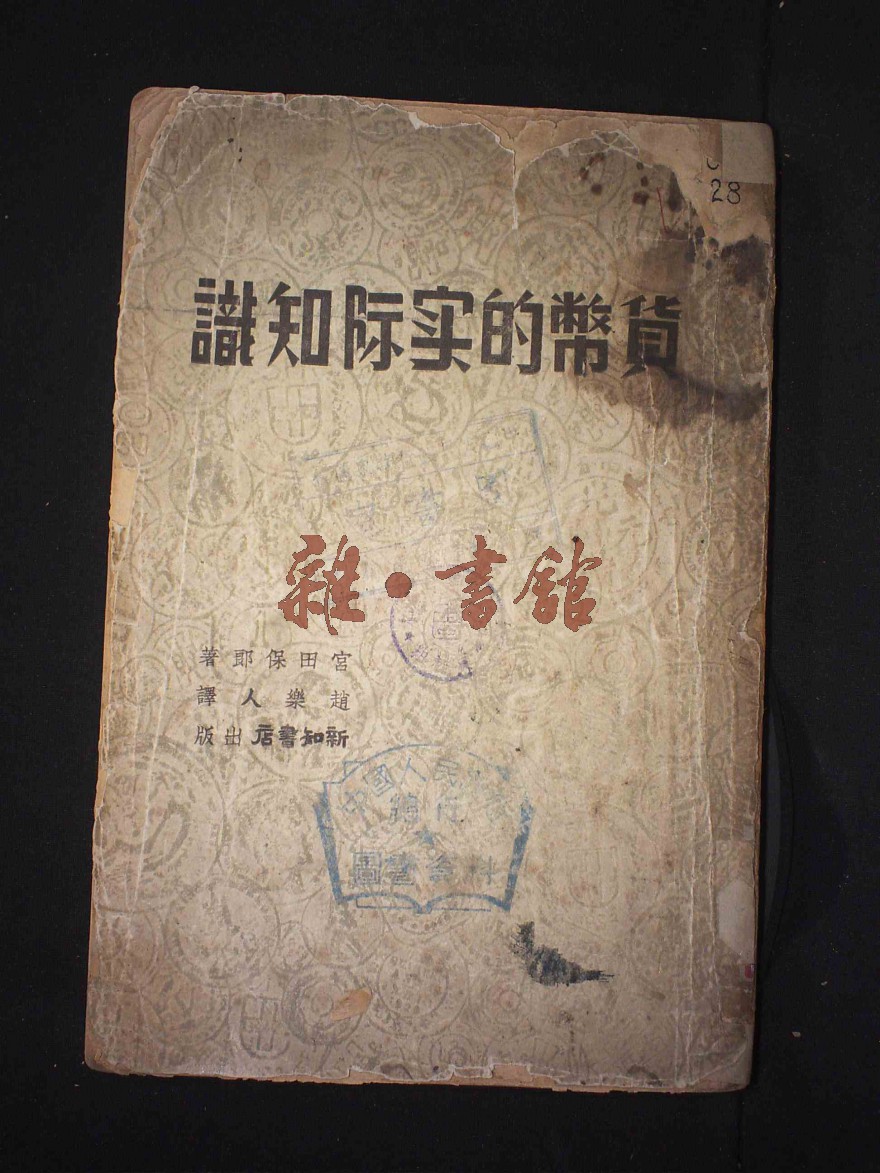 28
貨幣的实际知識
雜·書館
宮田保郎著
趙樂人譯
新知書店出版
中國人民
圖書資料